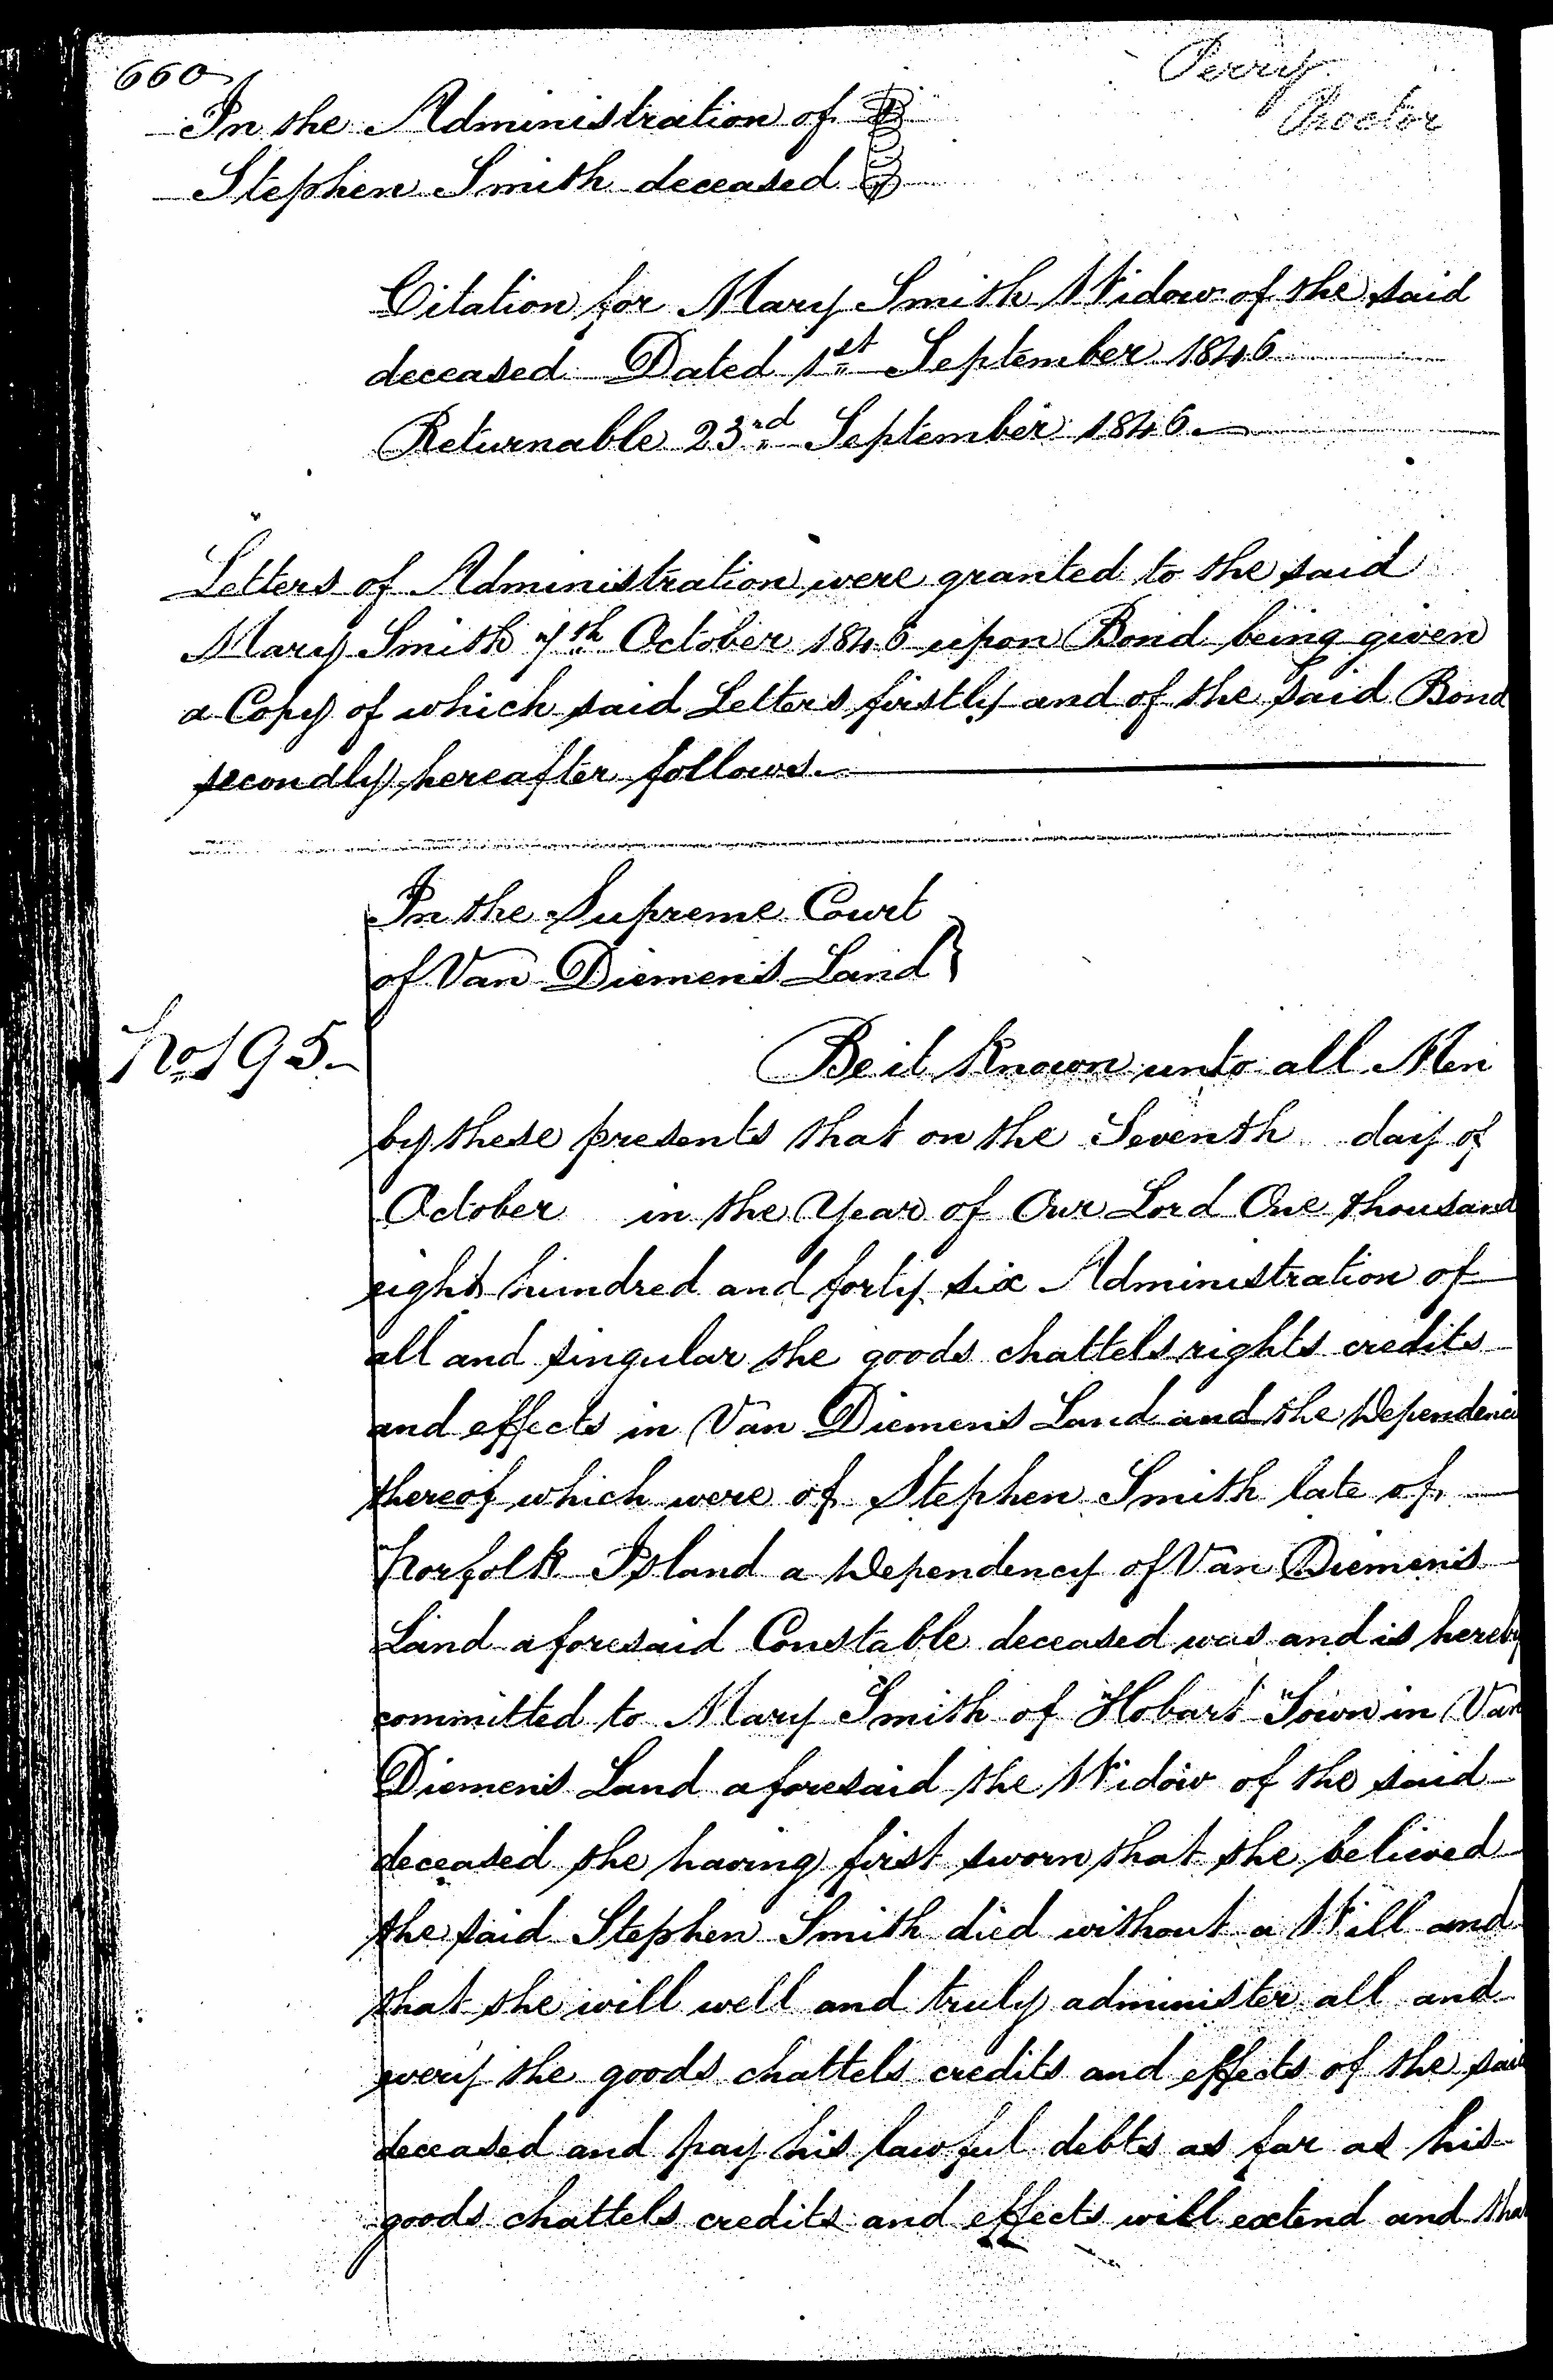 660
Perry
Proctor
In the Administration of
Stephen Smith deceased
Citation for Mary Smith Widow of the said
deceased Dated 1st September 1846
Returnable 23rd September 1846.
Letters of Administration were granted to the said
Mary Smith 7th October 1846 upon Bond being given
a Copy of which said Letters firstly and of the said Bond
secondly hereafter follows.
In the Supreme Court
of Van Diemen's Land }
No 195
Be it Known unto all Men
by these presents that on the Seventh day of
October in the Year of Our Lord One thousand
eight hundred and forty six Administration of
all and singular the goods chattels rights credits
and effects in Van Diemen's Land and the Dependenci
thereof which were of Stephen Smith late of
Norfolk Island a Dependency of Van Diemen's
Land aforesaid Constable deceased was and is hereby
committed to Mary Smith of Hobart Town in Van
Diemen's Land aforesaid the Widow of the said
deceased she having first sworn that she believed
the said Stephen Smith died without a Will and
that she will well and truly administer all and
every the goods chattels credits and effects of the said
deceased and pay his lawful debts as far as his
goods chattels credits and effects will extend and that